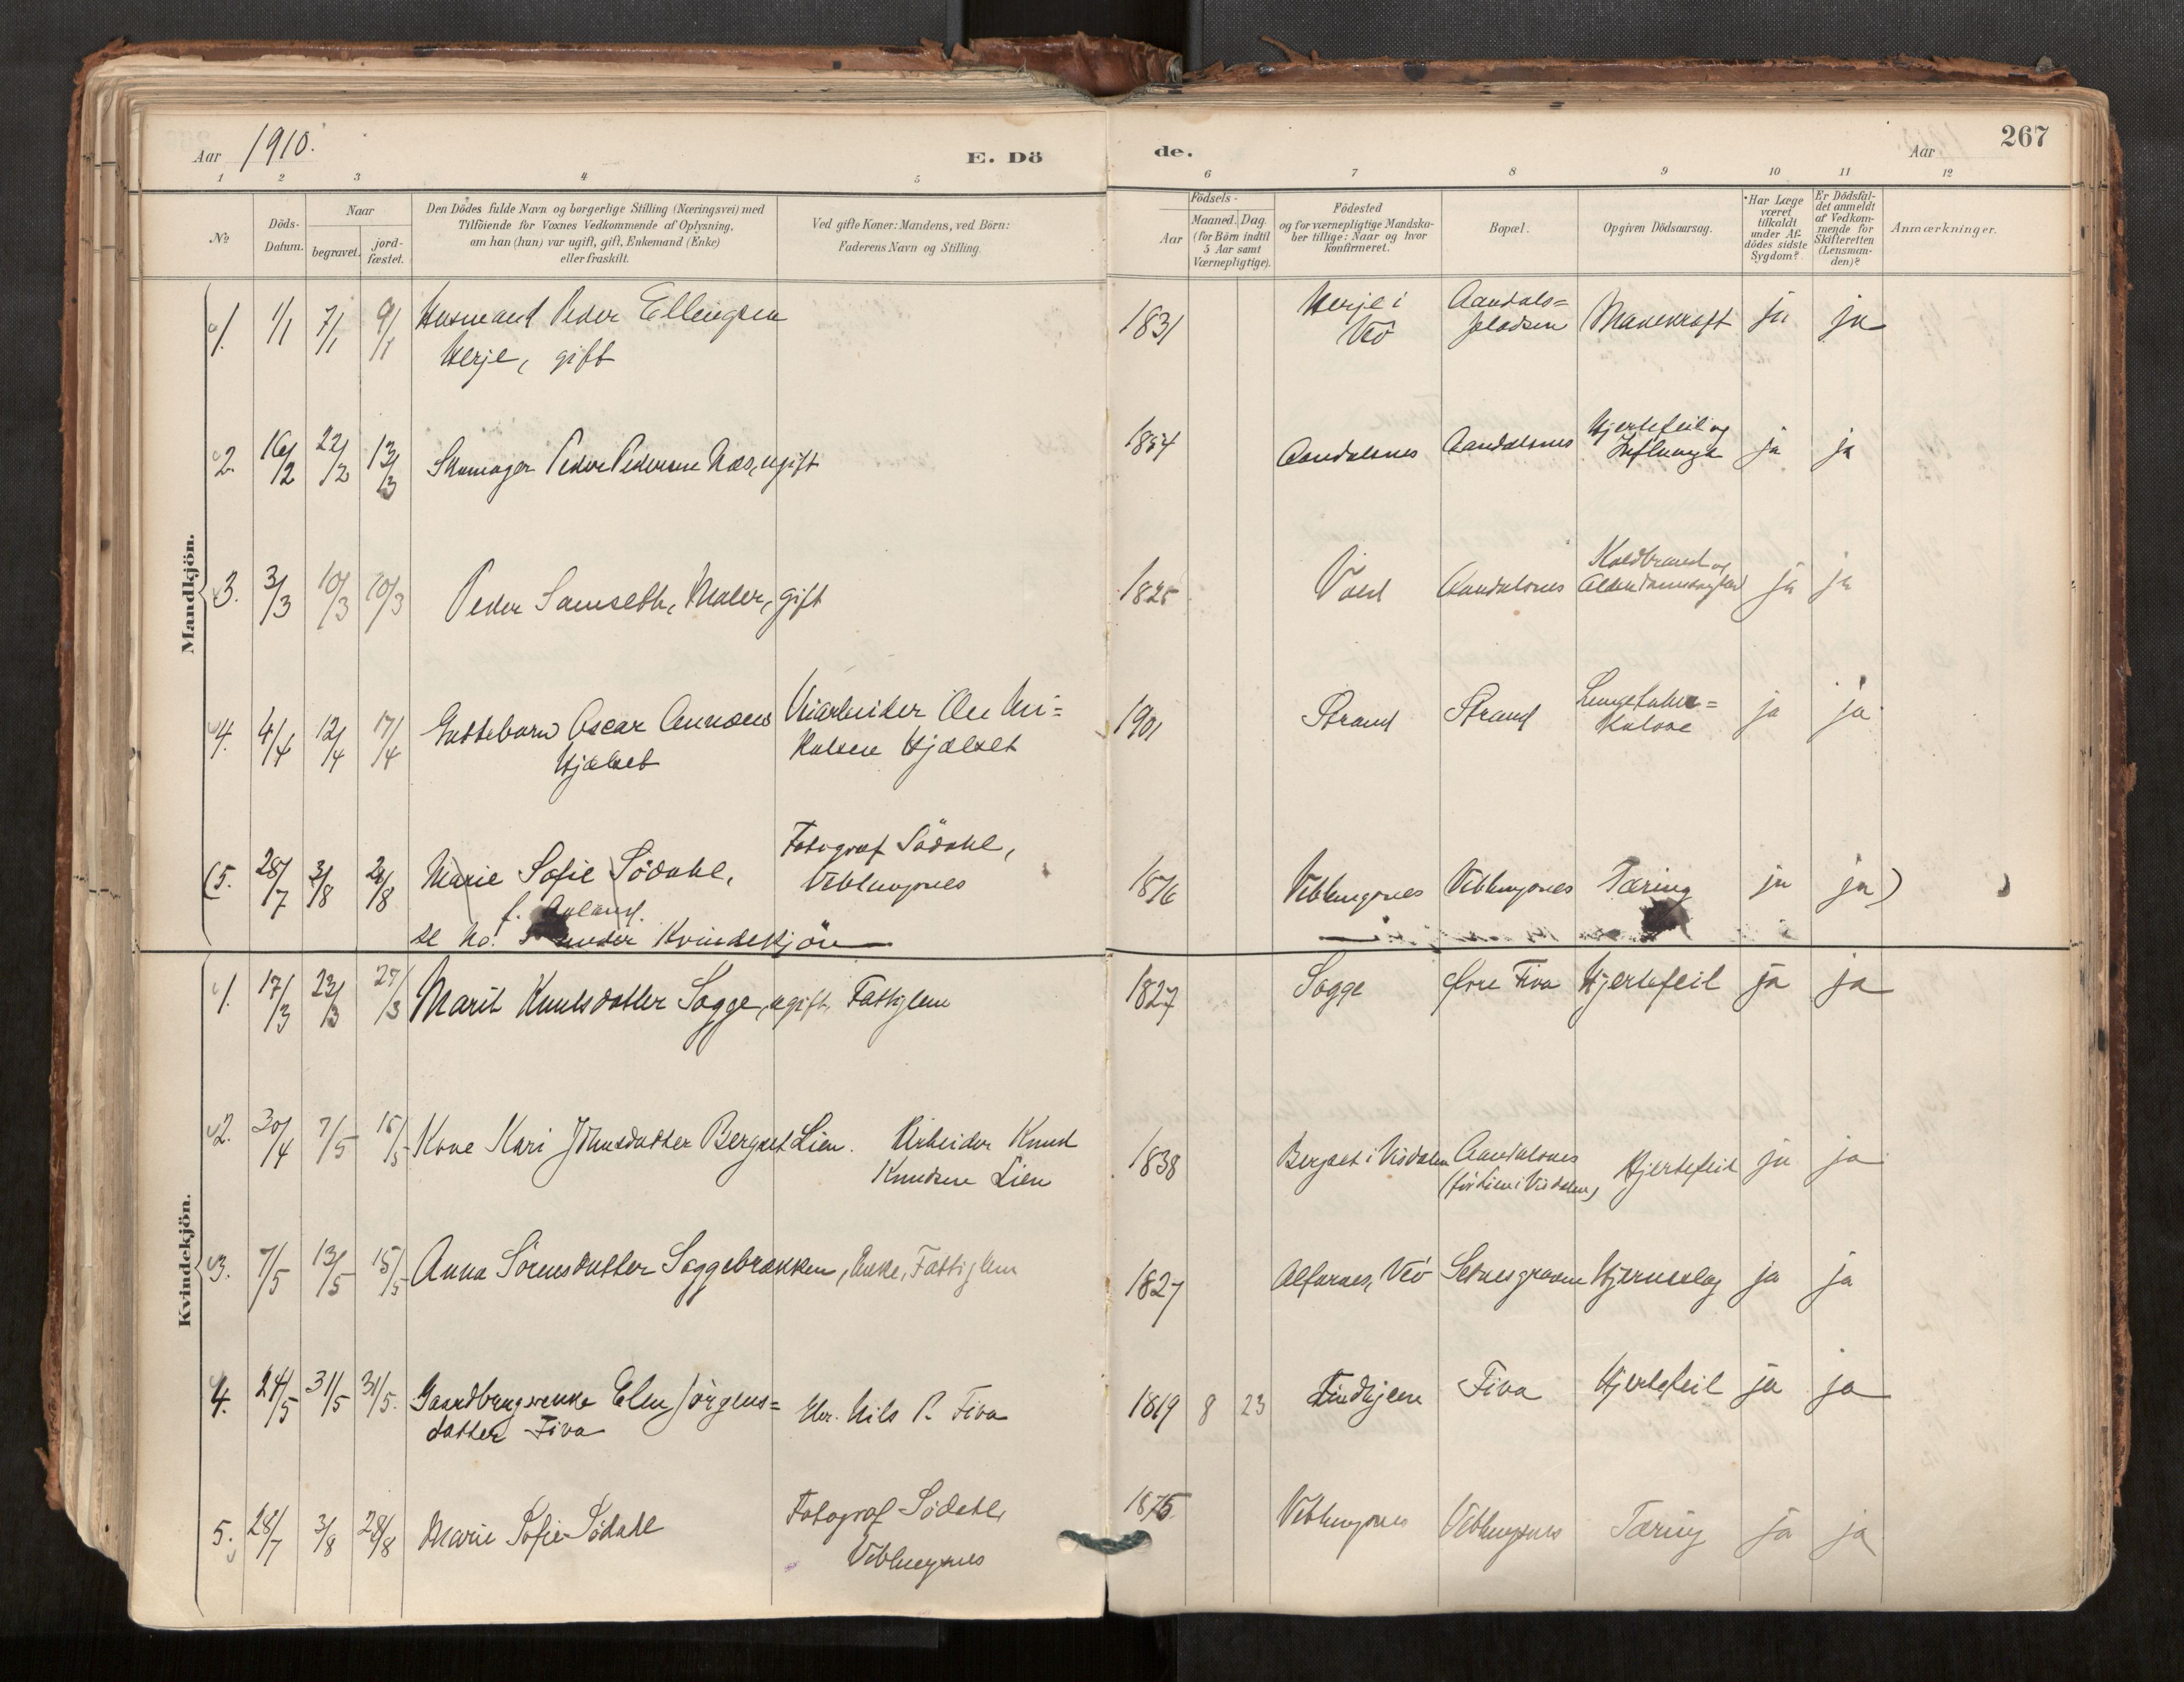 Aar 1910.
E. Dö
de.
Aar
267
1 2 3 4 5 6 7 8 9 10 11 12
No
Döds-
Datum.
Naar
begravet.
jord-
fæstet.
Den Dödes fulde Navn og borgerlige Stilling (Næringsvei) med
Tilföiende for Voxnes Vedkommende af Oplysning,
om han (hun) var ugift, gift, Enkemand (Enke)
eller fraskilt.
Ved gifte Koner: Mandens, ved Börn:
Faderens Navn og Stilling.
Födsels-
Aar
Maaned. Dag.
(for Börn indtil
5 Aar samt
Værnepligtige).
Födested
og for værnepligtige Mandska-
ber tillige: Naar og hvor
konfirmeret.
Bopæl.
Opgiven Dödsaarsag.
Har Læge
været
tilkaldt
under Af-
dödes sidste
Sygdom?
Er Dödsfal-
det anmeldt
af Vedkom-
mende for
Skifteretten
(Lensman-
den)?
Anmærkninger.
Mandkjön.
1. 1/1 7/1 9/1 Husmand Peder Ellingsen
Herje, gift
1831 Herje i
Veö
Aandals=
pladsen
Mavekræft ja ja
2. 16/2 22/2 13/3 Skomager Peder Pedersen Næs, ugift
1854 Aandalsnes Aandalsnes Hjertefeil og
Influenza ja ja
3. 3/3 10/3 10/3 Peder Samseth, Maler, gift
1825 Vold Aandalsnes Koldbrand og
Alderdomssvaghed ja ja
4. 4/4 12/4 17/4 Guttebarn Oscar Annæus
Hjelset
Veiarbeider Ole Ni=
kolsen Hjælset
1901 Strand Strand Lungetuber=
kulose ja ja
(5. 28/7 3/8 28/8 Marie Sofie Södahl,
f. Aaland.
se No. 5 under Kvindekjön
Fotograf Södahl,
Veblungsnes
1876 Veblungsnes Veblungsnes Tæring ja ja)
Kvindekjön.
1. 17/3 23/3 27/3 Marit Knutsdatter Sogge, ugift, Fattiglem
1827 Sogge Øvre Fiva Hjertefeil ja ja
2. 30/4 7/5 15/5 Kone Kari Johnsdatter Bergset Lien. Arbeider Knud
Knudsen Lien
1838 Bergset i Visdalen Aandalsnes
(før Lien i Visdalen)
Hjertefeil ja ja
3. 7/5 13/5 15/5 Anna Sörensdatter Soggebrækken, Enke, Fattiglem
1827 Alfarnes, Veö Setnesgroven Hjerneslag ja ja
4. 24/5 31/5 31/5. Gaardbrugerenke Elen Jörgens=
datter Fiva
Eft. Nils P. Fiva
1819 8 23 Lindhjem Fiva Hjertefeil ja ja
5. 28/7 3/8 28/8 Marie Sofie Södahl
Fotograf Södahl,
Veblungsnes
1875 Veblungsnes Veblungsnes Tæring ja ja